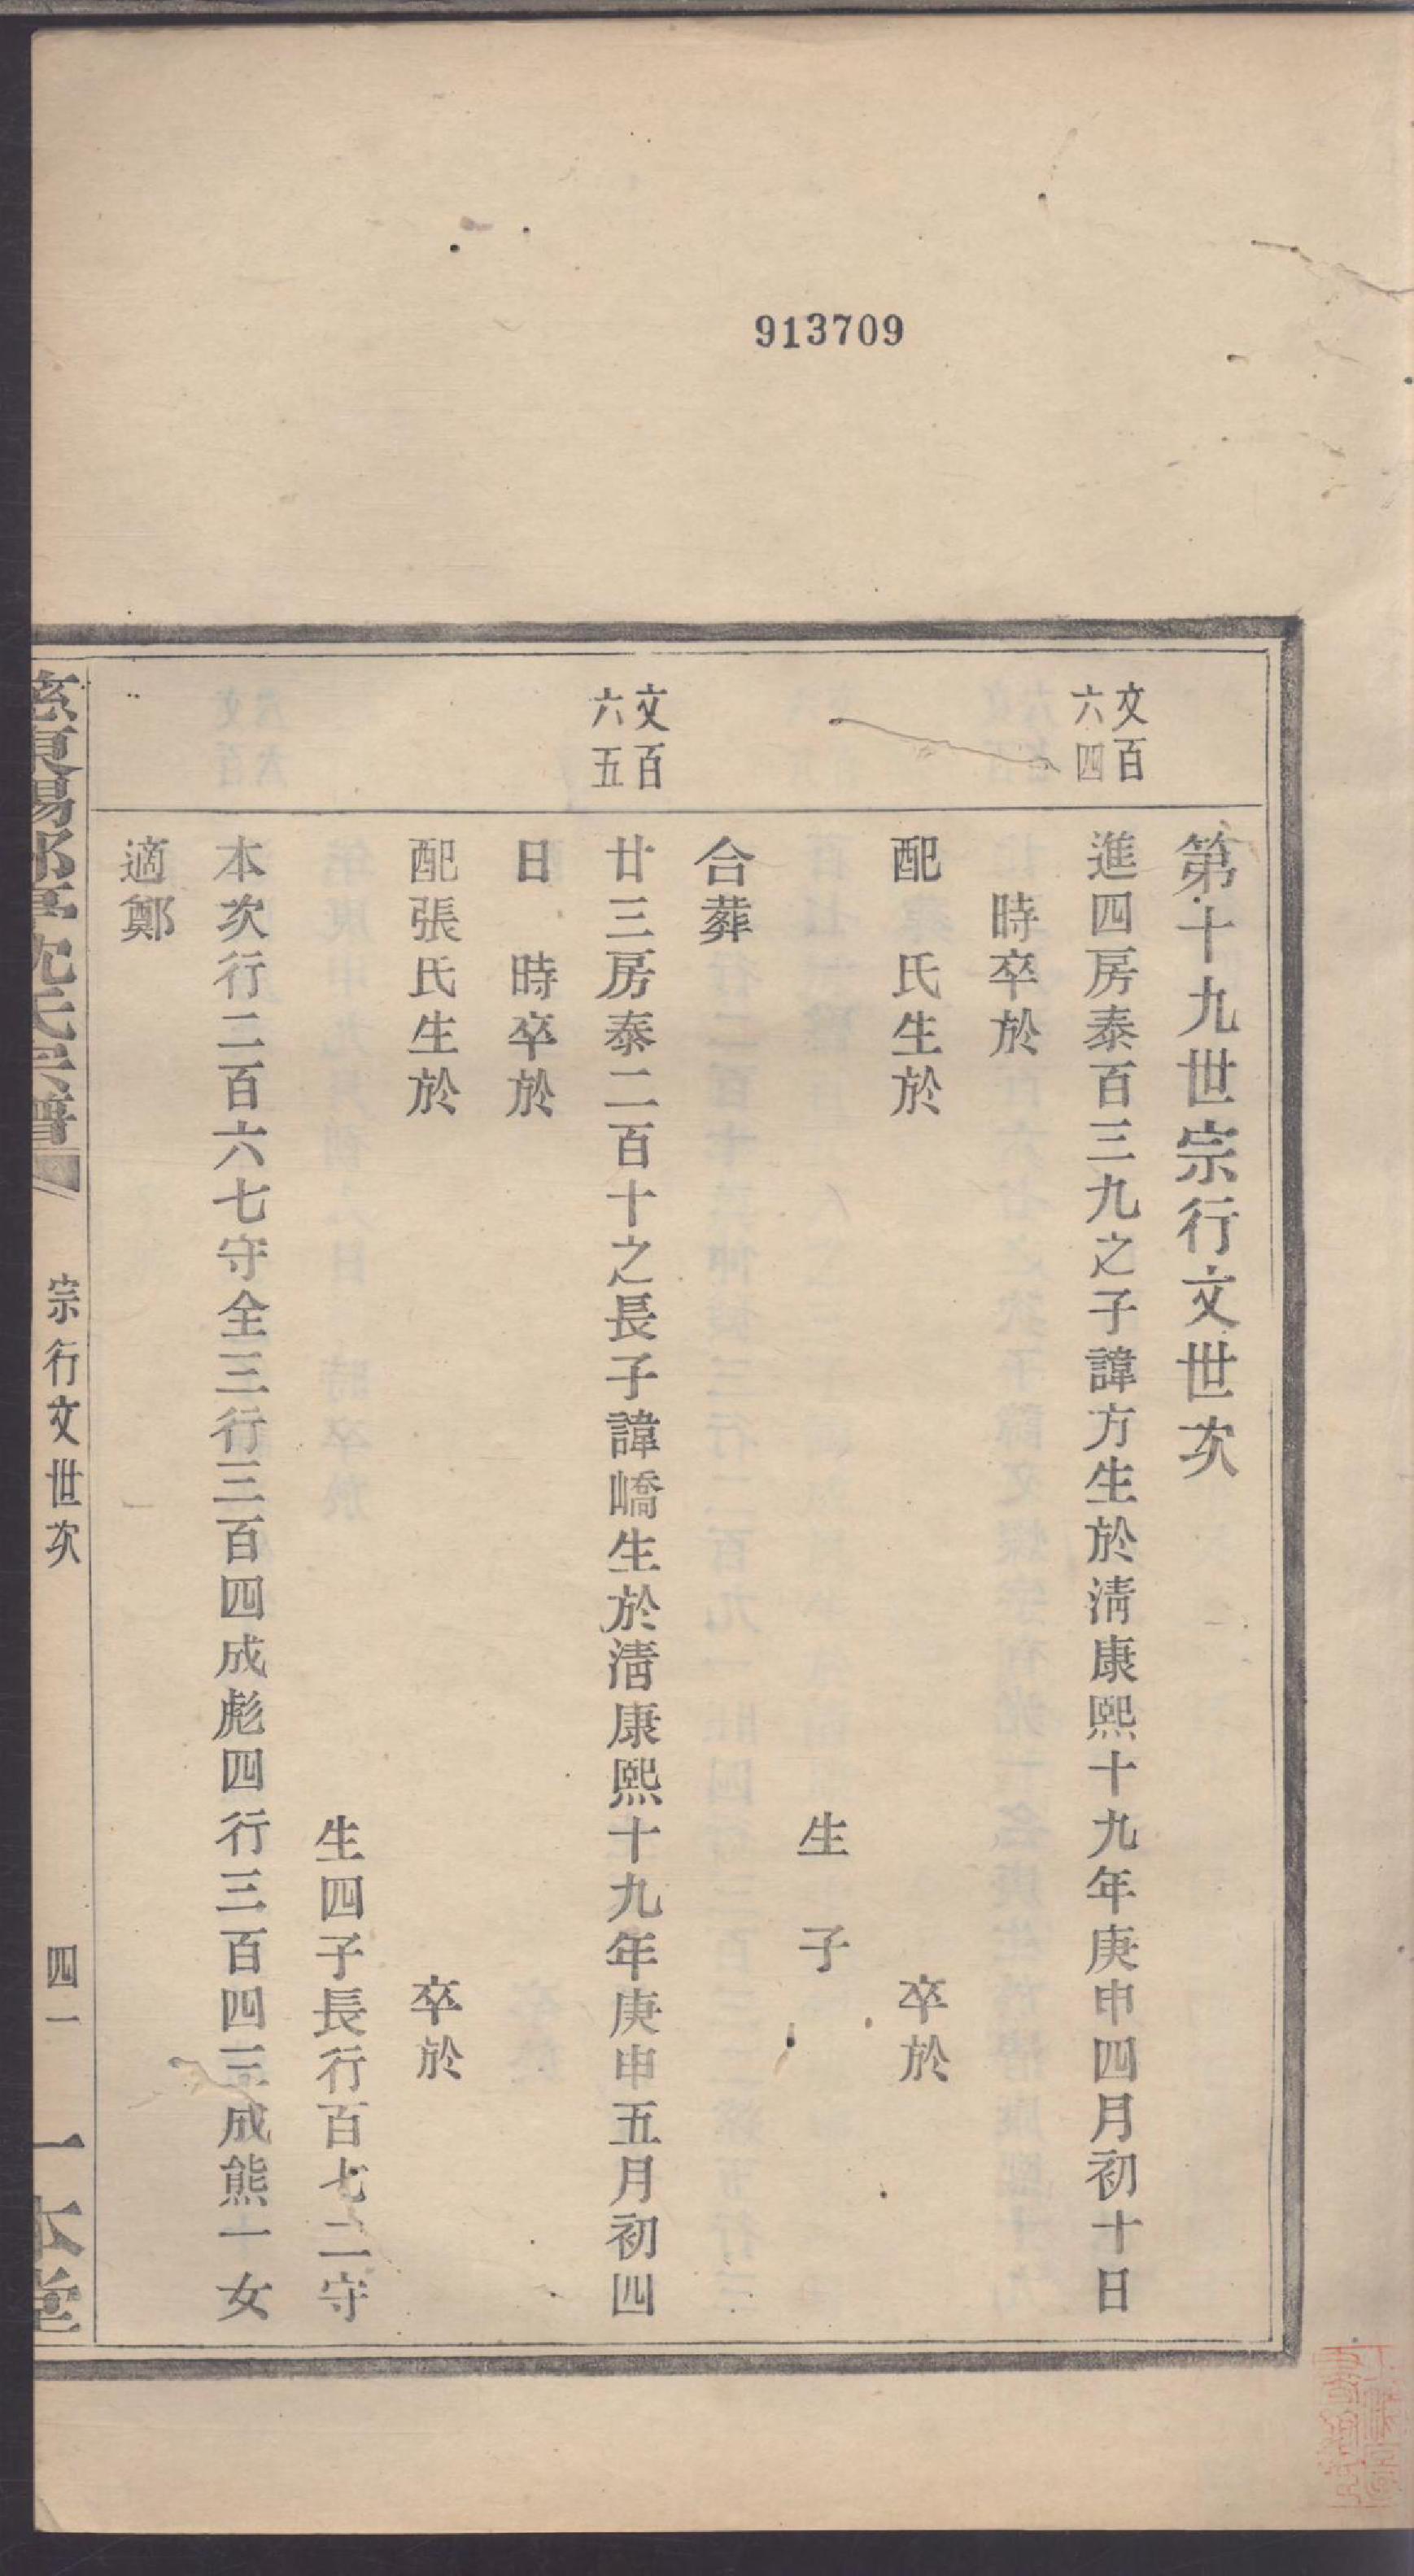 913709
第十九世宗行文世次
文百
六四
進四房泰百三九之子諱方生於淸康熙十九年庚申四月初十日
時卒於
配　氏生於　卒於
生　子
合葬
文百
六五
廿三房泰二百十之長子諱嶠生於淸康熙十九年庚申五月初四
日　時卒於
配張氏生於　卒於
生四子長行百七二守
本次行二百六七守全三行三百四成彪四行三百四三成熊一女
適鄭
慈東 沈氏宗譜
宗行文世次
四一
一本堂